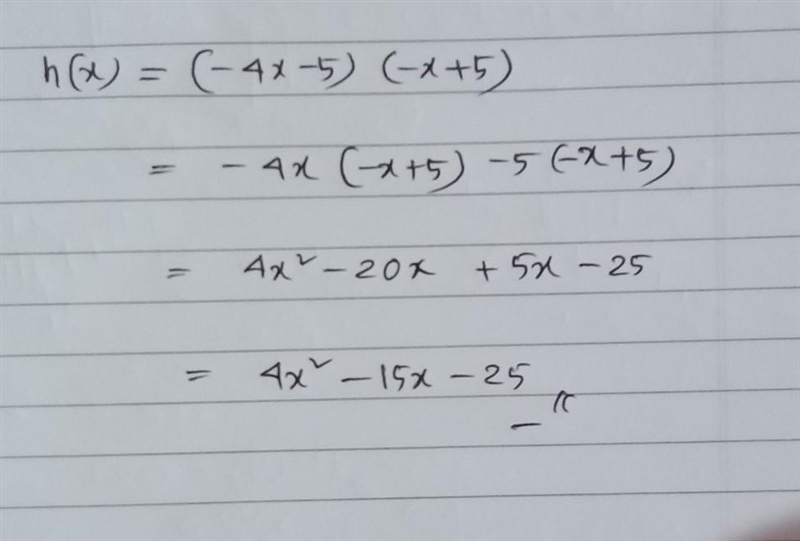 h(x) = (-4x-5) (-x+5)
= -4x (-x+5) -5 (-x+5)
= 4x² - 20x + 5x - 25
= 4x² - 15x - 25